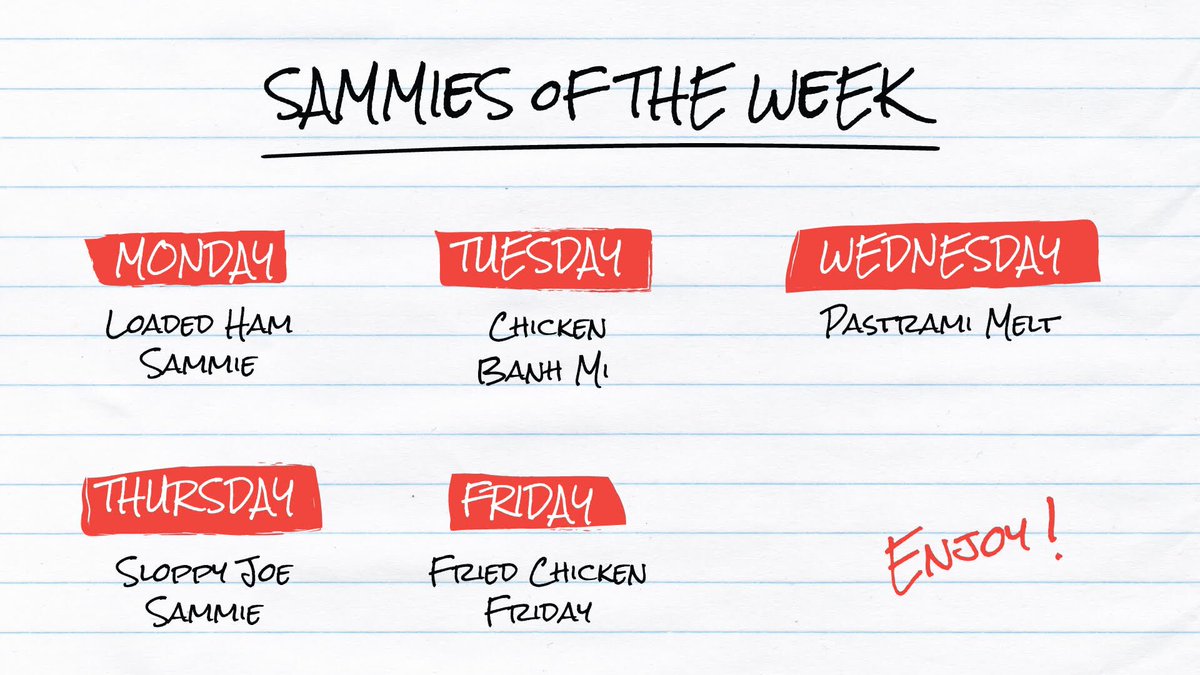 SAMMIES OF THE WEEK
MONDAY
LOADED HAM
SAMMIE
TUESDAY
CHICKEN
BANH MI
WEDNESDAY
PASTRAMI MELT
THURSDAY
SLOPPY JOE
SAMMIE
FRIDAY
FRIED CHICKEN
FRIDAY
ENJOY!